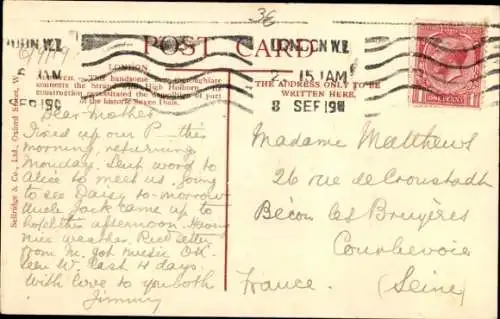 36
6/9/19
POST CARD
LONDON. W.1
2- 15 AM
8 SEP 19
LONDON.
This handsome thoroughfare
connects the Strand High Holborn. Its
construction necessitated the of part
of the historic Seven Dials.
THE ADDRESS ONLY TO BE
WRITTEN HERE.
Selfridge & Co., Ltd., Oxford Street, W.
Dear Mother
Fixed up our P this
morning, returning
Monday. Sent word to
Alice to meet us, going
to see Daisy to-morrow
Uncle Jack came up to
hotel this afternoon. Having
nice weather. Recd letter
from M. Got music OK.
seen W. last 4 days.
With love to you both
Jimmy
Madame Matthews
26 rue de Cronstadt
Bécon les Bruyères
Courbevoie
France. (Seine)